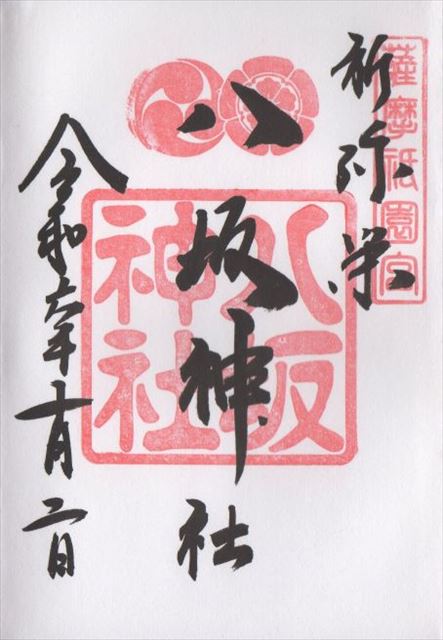 薩摩祇園宮
祈弥栄
八坂神社
八坂神社
令和六年十月二日